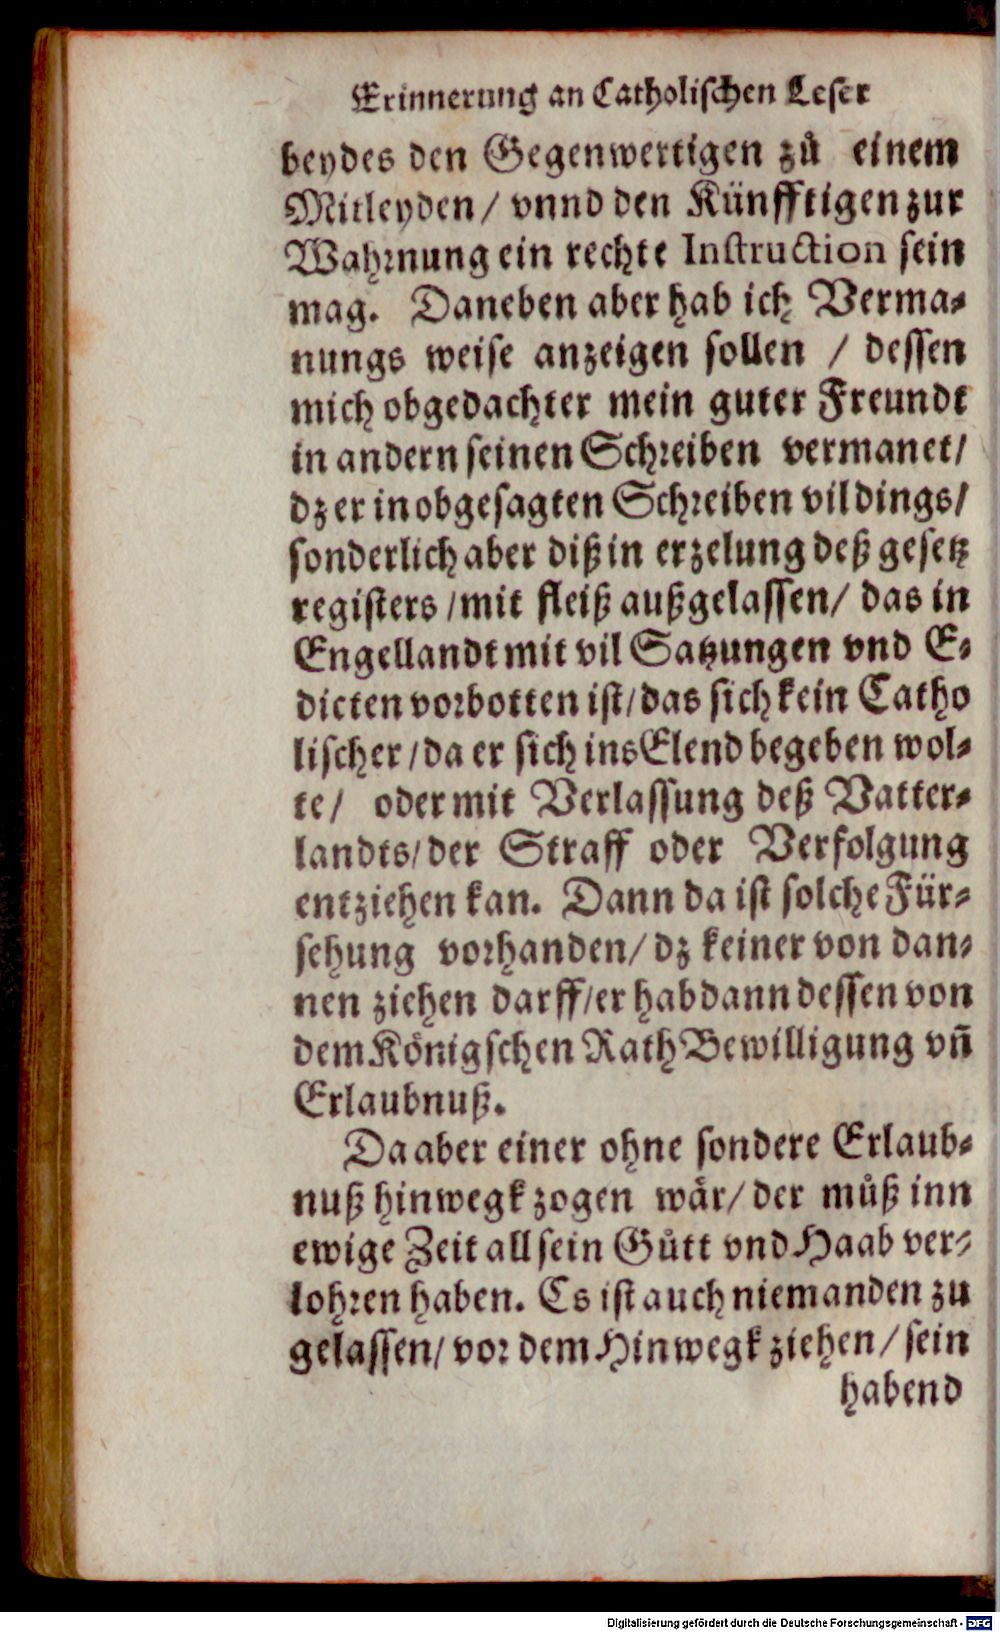 Erinnerung an Catholischen Leser
beydes den Gegenwertigen zů einem
Mitleyden / vnnd den Künfftigen zur
Wahrnung ein rechte Instruction sein
mag. Daneben aber hab ich Verma⸗
nungs weise anzeigen sollen / dessen
mich obgedachter mein guter Freundt
in andern seinen Schreiben vermanet/
dz er in obgesagten Schreiben vil dings/
sonderlich aber diß in erzelung deß gesetz
registers / mit fleiß außgelassen / das in
Engellandt mit vil Satzungen vnd E⸗
dicten vorbotten ist / das sich kein Catho
lischer / da er sich ins Elend begeben wol⸗
te / oder mit Verlassung deß Vatter⸗
landts / der Straff oder Verfolgung
entziehen kan. Dann da ist solche Für⸗
sehung vorhanden / dz keiner von dan⸗
nen ziehen darff / er hab dann dessen von
dem Königschen Rath Bewilligung vñ
Erlaubnuß.
Da aber einer ohne sondere Erlaub⸗
nuß hinwegk zogen wär / der můß inn
ewige Zeit all sein Gůtt vnd Haab ver⸗
lohren haben. Es ist auch niemanden zu
gelassen / vor dem Hinwegk ziehen / sein
habend
Digitalisierung gefördert durch die Deutsche Forschungsgemeinschaft - DFG